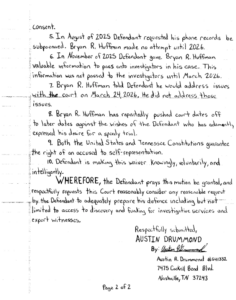 consent.
5. In August of 2025 Defendant requested his phone records be
subpoenaed. Bryan R. Huffman made no attempt until 2026.
6. In November of 2025 Defendant gave Bryan R. Huffman
valuable information to pass onto investigators in his case. This
information was not passed to the investigators until March 2026.
7. Bryan R. Huffman told Defendant he would address issues
with the court on March 24, 2026. He did not address those
issues.
8. Bryan R. Huffman has repeatedly pushed court dates off
to later dates against the wishes of the Defendant who has adamantly
expressed his desire for a speedy trial.
9. Both the United States and Tennessee Constitutions guarantee
the right of an accused to self-representation.
10. Defendant is making this waiver knowingly, voluntarily, and
intelligently.
WHEREFORE, the Defendant prays this motion be granted, and
respectfully requests this Court reasonably consider any reasonable request
by the Defendant to adequately prepare his defense including but not
limited to access to discovery and funding for investigative services and
expert witnesses.
Respectfully submitted,
AUSTIN DRUMMOND
By: Austin Drummond
Austin R. Drummond
7475 Cockrill Bend Blvd
Nashville, TN 37243
Page 2 of 2